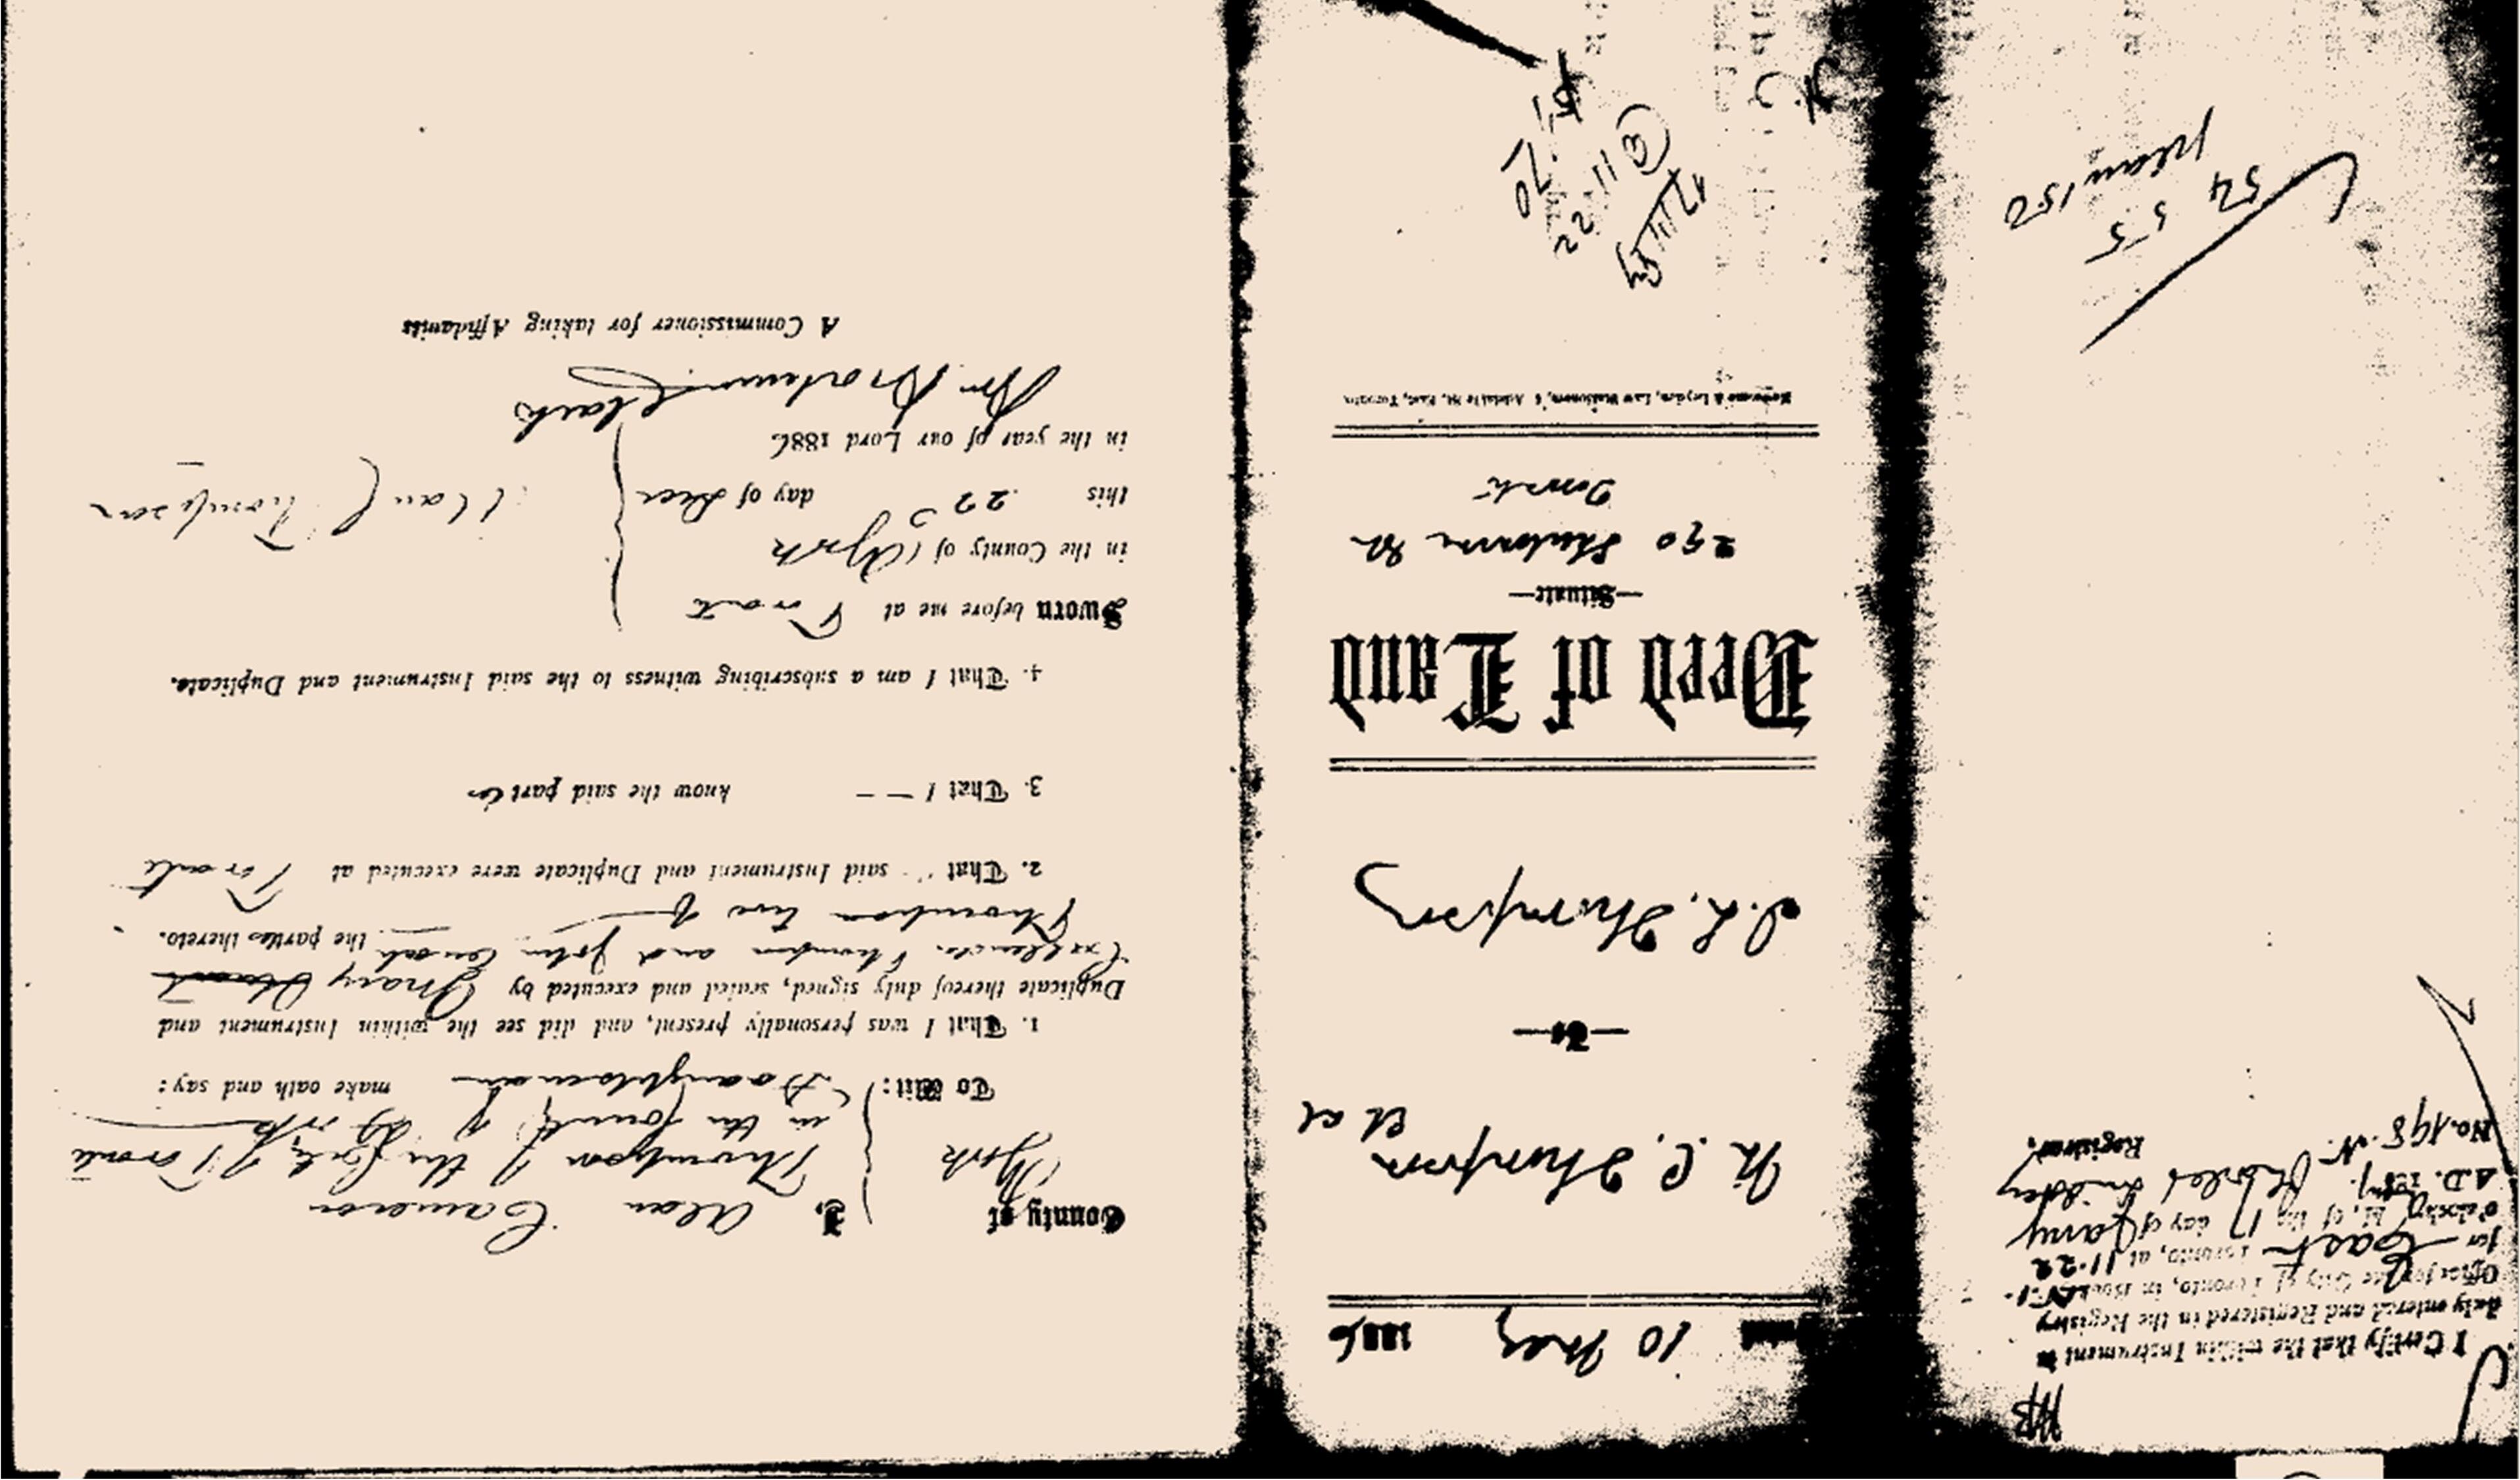 HB
I Certify that the within Instrument is
duly entered and Registered in the Registry
Office for the City of Toronto, in Book
for East Toronto, at 11.22
o'clock, of the 17 day of Jany
A.D. 1887.
No. 198. N.
Registrar.
54
55
plan 150
Dated 10 May 1886
M. C. Thompson
et al
—To—
S. L. Thompson
Deed of Land
—Situate—
290 Sherbourne St
Toronto
Rowsome & Leyden, Law Stationers, 6 Adelaide St. East, Toronto.
11.22
1.70
County of York
To Wit:
I, Alan Cameron
Thompson of the City of Toronto
in the County of York
Draughtsman make oath and say:
1. That I was personally present, and did see the within Instrument and
Duplicate thereof duly signed, sealed and executed by Mary
Thompson and John
Thompson two of the parties thereto.
2. That said Instrument and Duplicate were executed at Toronto
3. That I — — know the said parties
4. That I am a subscribing witness to the said Instrument and Duplicate.
Sworn before me at Toronto
in the County of York
this 22 day of Dec
in the year of our Lord 1886
Alan C. Thompson
Wm Mortimer Clark
A Commissioner for taking Affidavits